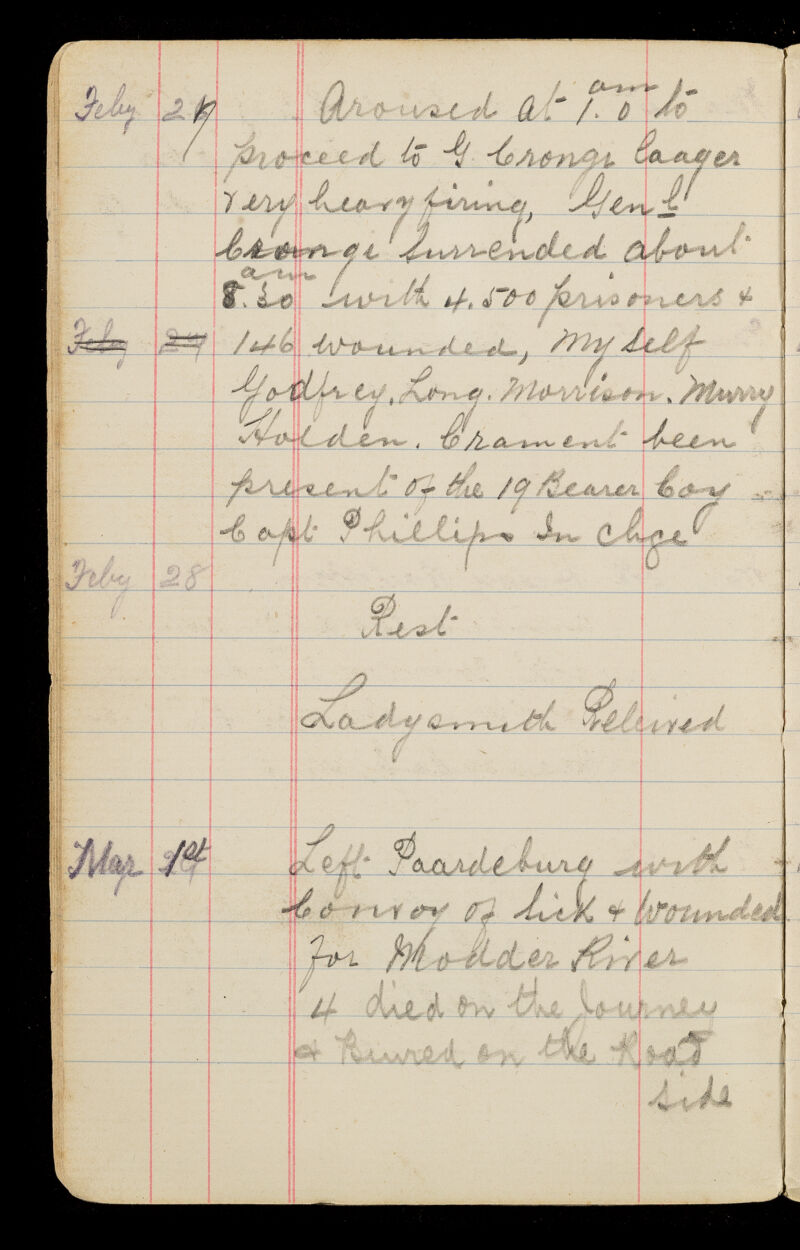 Feby 27 Aroused at 1.0 am to
proceed to G. Cronge Laager
very heavy firing, Genl
Cronge Surrended about
8.30 am with 4.500 prisoners &
Feby 27 146 wounded, My Self
Godfrey. Long. Morrison. Murry
Holden. Crament been
present of the 19 Bearer Coy
Capt Phillips In chge
Feby 28
Rest
Ladysmith Releived
Mar 1st Left Paardeburg with
Convoy of Sick & Wounded
for Modder River
4 died on the Journey
& Buired on the Road
side